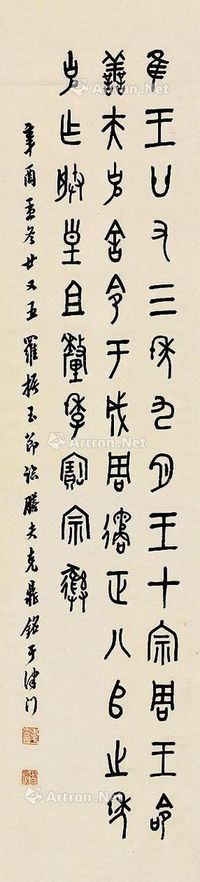 隹王廿又三年九月王才宗周王命
善夫克舍令于成周遹正八𠂤之年
克乍朕皇且釐季寶宗彝
辛酉孟冬廿又五羅振玉節臨膳夫克鼎銘于津門
Artron.Net
Artron.Net
Artron.Net